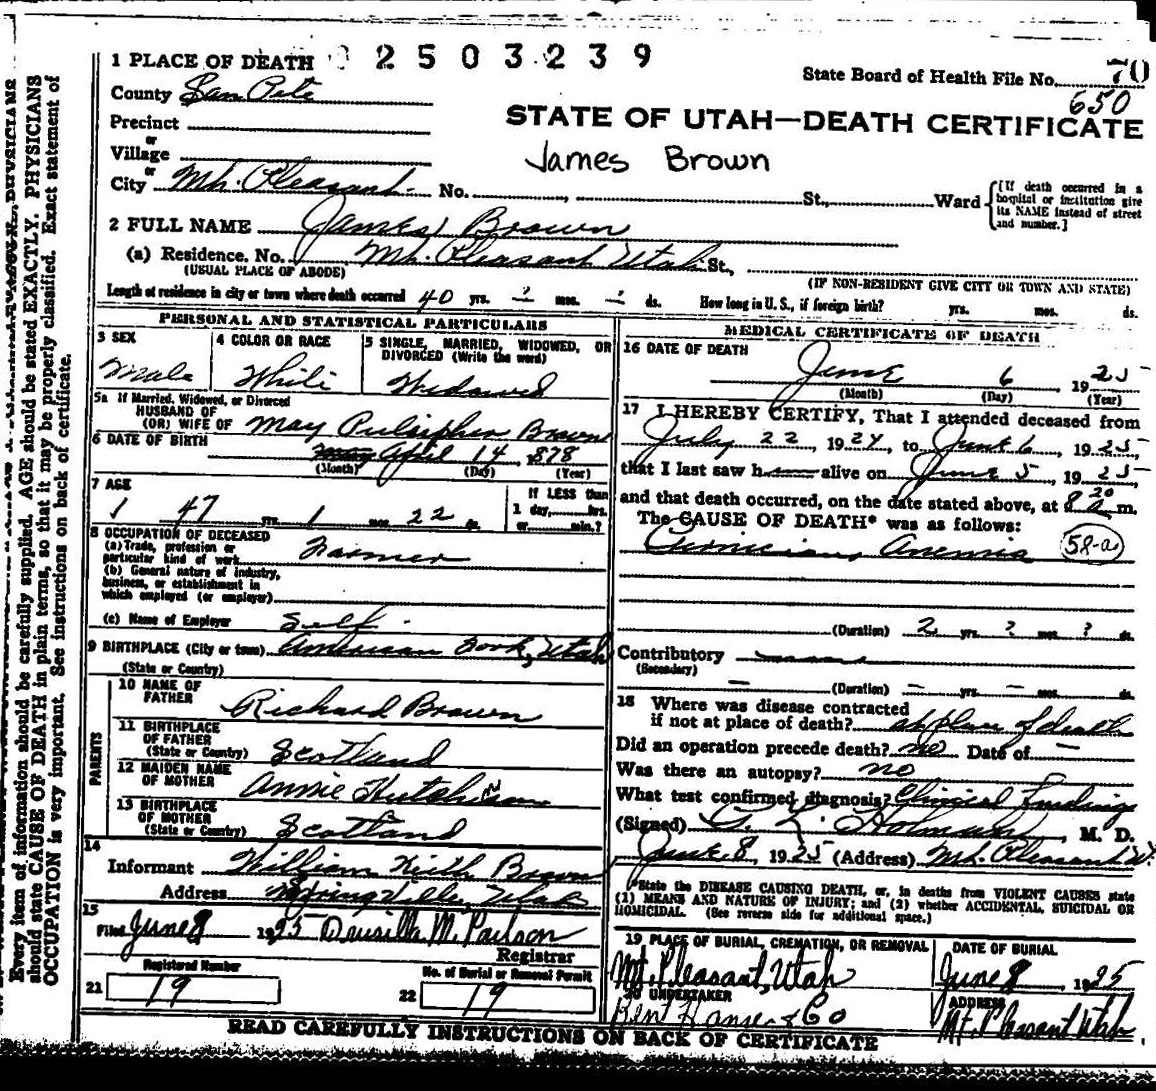 1 PLACE OF DEATH 2503239
State Board of Health File No. 70
650
County San Pete
STATE OF UTAH—DEATH CERTIFICATE
Precinct
or
Village
James Brown
or
City Mt. Pleasant No. , St., Ward
[If death occurred in a
hospital or institution give
its NAME instead of street
and number.]
2 FULL NAME James Brown
(a) Residence. No. Mt. Pleasant Utah St.,
(USUAL PLACE OF ABODE) (IF NON-RESIDENT GIVE CITY OR TOWN AND STATE)
Length of residence in city or town where death occurred 40 yrs. ? mos. ? ds. How long in U. S., if foreign birth? yrs. mos. ds.
PERSONAL AND STATISTICAL PARTICULARS
3 SEX
Male
4 COLOR OR RACE
White
5 SINGLE, MARRIED, WIDOWED, OR
DIVORCED (Write the word)
Widowed
5a If Married, Widowed, or Divorced
HUSBAND OF
(OR) WIFE OF May Pulsipher Brown
6 DATE OF BIRTH
May April 14, 878
(Month) (Day) (Year)
7 AGE
1 47 yrs. 1 mos. 22 ds.
If LESS than
1 day, hrs.
or min.?
8 OCCUPATION OF DECEASED
(a) Trade, profession or
particular kind of work Farmer
(b) General nature of industry,
business, or establishment in
which employed (or employer)
(c) Name of Employer Self
9 BIRTHPLACE (City or town) American Fork, Utah
(State or Country)
PARENTS
10 NAME OF
FATHER Richard Brown
11 BIRTHPLACE
OF FATHER
(State or Country) Scotland
12 MAIDEN NAME
OF MOTHER Annie Hutchison
13 BIRTHPLACE
OF MOTHER
(State or Country) Scotland
14
Informant William Keith Brown
Address Springville, Utah
15
Filed June 8 1925 Drusilla M. Paulson
Registrar
Registered Number
21 19
No. of Burial or Removal Permit
22 19
MEDICAL CERTIFICATE OF DEATH
16 DATE OF DEATH
June 6, 1925
(Month) (Day) (Year)
17 I HEREBY CERTIFY, That I attended deceased from
July 22, 1924, to June 6, 1925,
that I last saw h alive on June 5, 1925
and that death occurred, on the date stated above, at 8 20 a m.
The CAUSE OF DEATH* was as follows:
Pernicious Anemia 58-a
(Duration) 2 yrs. ? mos. ? ds.
Contributory
(Secondary)
— (Duration) — yrs. — mos. ds.
18 Where was disease contracted
if not at place of death? at place of death
Did an operation precede death? no Date of —
Was there an autopsy? no
What test confirmed diagnosis? Clinical findings
(Signed) Holman, M. D.
June 8, 1925 (Address) Mt. Pleasant U.
*State the DISEASE CAUSING DEATH, or, in deaths from VIOLENT CAUSES state
(1) MEANS AND NATURE OF INJURY; and (2) whether ACCIDENTAL, SUICIDAL OR
HOMICIDAL. (See reverse side for additional space.)
19 PLACE OF BURIAL, CREMATION, OR REMOVAL
Mt. Pleasant, Utah
DATE OF BURIAL
June 8, 1925
20 UNDERTAKER
Bent Hansen & Co
ADDRESS
Mt. Pleasant Utah
READ CAREFULLY INSTRUCTIONS ON BACK OF CERTIFICATE
Every item of information should be carefully supplied. AGE should be stated EXACTLY. PHYSICIANS
should state CAUSE OF DEATH in plain terms, so that it may be properly classified. Exact statement of
OCCUPATION is very important. See instructions on back of certificate.